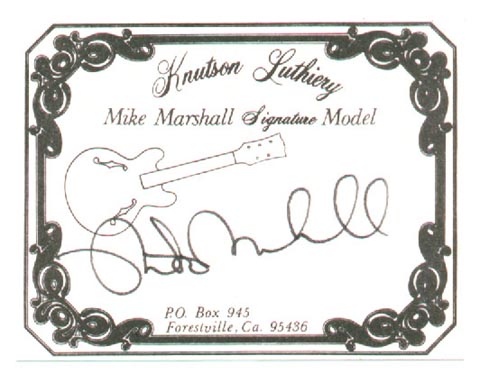 Knutson Luthiery
Mike Marshall Signature Model
Mike Marshall
P.O. Box 945
Forestville, Ca. 95436